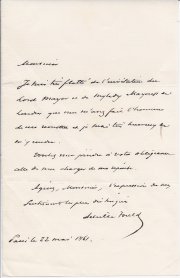 Monsieur
Je suis très flatté de l'invitation du
Lord Mayor et de Mylady Mayoress de
Londres que vous m'avez fait l'honneur
de me et je serai très heureux de
m'y rendre.
Veuillez vous joindre à votre obligeance
celle de vous charger de ma réponse.
Agréez, Monsieur, l'expression de mes
sentiments les plus distingués
Paris le 22 mai 1861.